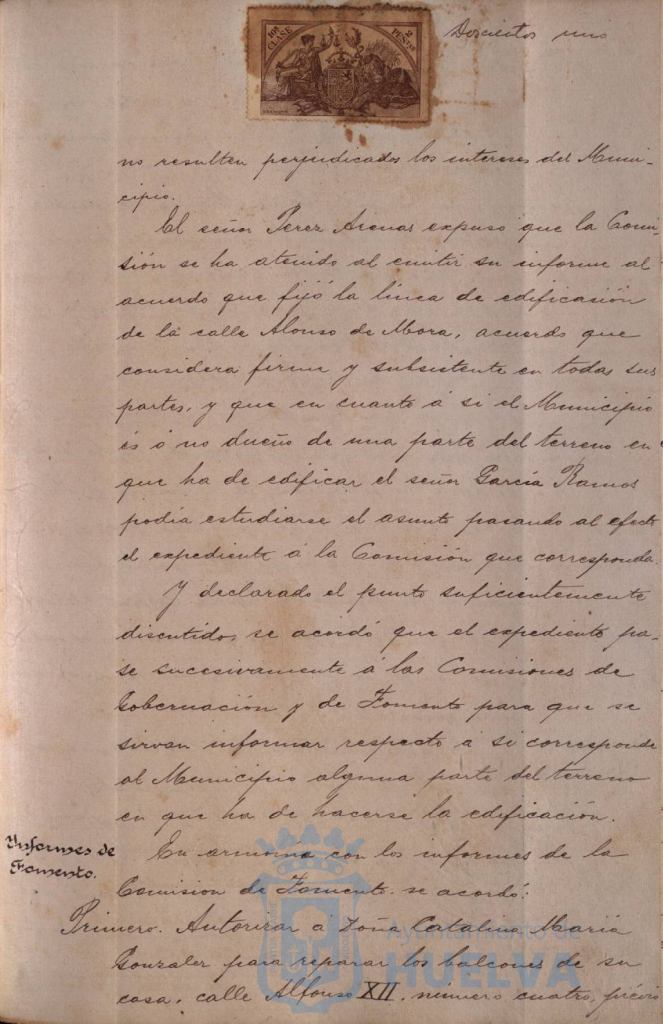 10ª CLASE
2 PESETAS
Doscientos uno
no resulten perjudicados los intereses del Muni-
cipio.
El señor Perez Arenas expuso que la Comi-
sión se ha atenido al emitir su informe al
acuerdo que fijó la línea de edificasión
de la calle Alonso de Mora, acuerdo que
considera firme y subsistente en todas sus
partes, y que en cuanto á si el Municipio
és ó no dueño de una parte del terreno en
que ha de edificar el señor García Ramos
podia estudiarse el asunto pasando al efecto
el expediente á la Comisión que corresponda.
Y declarado el punto suficientemente
discutido, se acordó que el expediente pa-
se sucesivamente á las Comisiones de
Gobernación y de Fomento para que se
sirvan informar respecto á si corresponde
al Municipio alguna parte del terreno
en que ha de hacerse la edificación.
Informes de
Fomento.
En armonía con los informes de la
Comision de Fomento se acordó:
Primero. Autorizar á Doña Catalina María
Gonzalez para reparar los balcones de su
casa, calle Alfonso XII, número cuatro, prévio
Ayuntamiento de
HUELVA